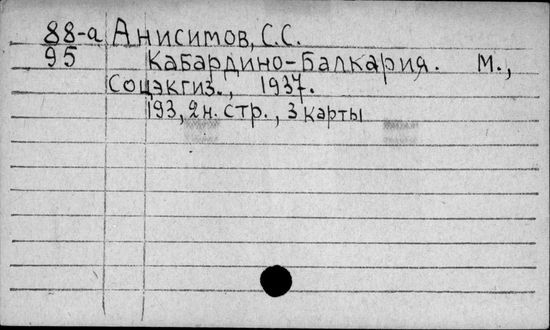 88-а Анисимов, С.С.
95 Кабардино-Балкария. М.,
Соцэкгиз., 1937.
193, 2 н. стр., 3 карты